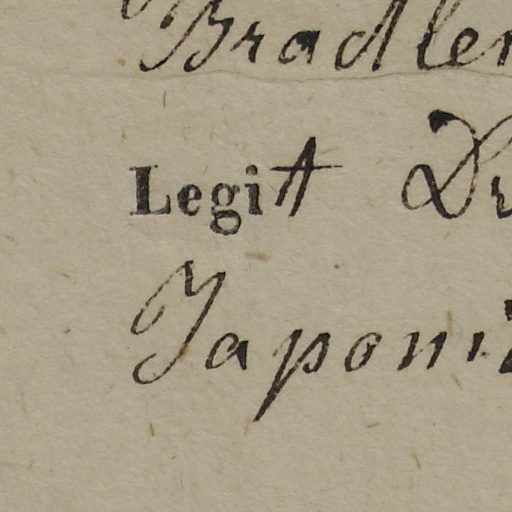 Bradle
Legit Dr
Japoni